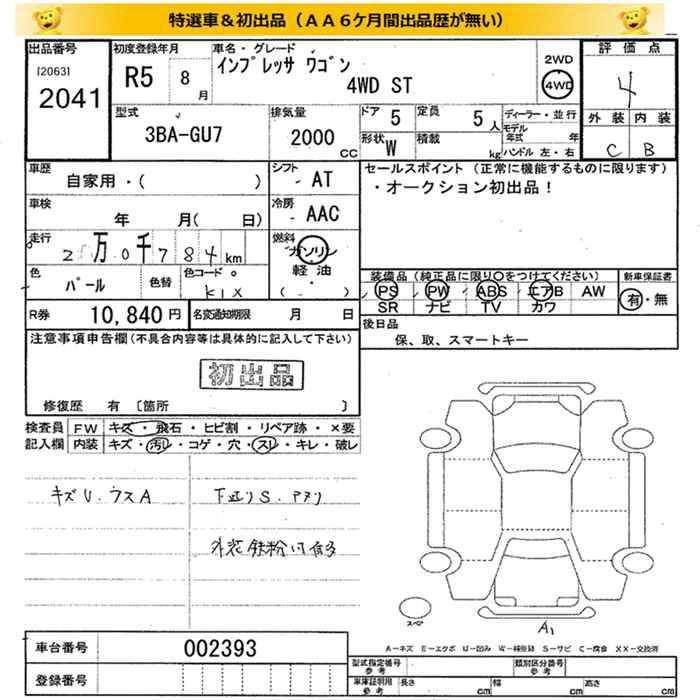 特選車＆初出品（ＡＡ６ケ月間出品歴が無い）
出品番号 初度登録年月 車名・グレード 評価点
[2063] R5 8月 インプレッサ ワゴン 2WD
2041 4WD ST 4WD 4
型式 排気量 ドア 5 定員 5人 ディーラー・並行 外装 内装
3BA-GU7 2000cc 形状 W 積載 kg モデル年式 年 C B
ハンドル 左・右
車歴 シフト セールスポイント（正常に機能するものに限ります）
自家用・( ) AT ・オークション初出品！
車検 年 月( 日) 冷房 AAC
走行 2万0千784km 燃料 ガソリン
軽油
( ・ )
色 パール 色替 色コード K1X
装備品（純正品に限り○をつけてください） 新車保証書
PS PW ABS エアB AW 有・無
SR ナビ TV カワ
R券 10,840円 名変通知期限 月 日 後日品
保、取、スマートキー
注意事項申告欄(不具合内容等は具体的に記入して下さい)
初出品
修復歴 有 〔箇所 〕
検査員 FW キズ・飛石・ヒビ割・リペア跡・×要
記入欄 内装 キズ・汚レ・コゲ・穴・スレ・キレ・破レ
キズU.ウスA 下廻りS.アリ
外装鉄粉付有
スペ
A1
A－キズ E－エクボ U－凹み W－補修跡 S－サビ C－腐食 XX－交換済
車台番号 002393
登録番号
型式指定番号 参考 類別区分番号 参考
車庫証明用 参考 長さ cm 幅 cm 高さ cm